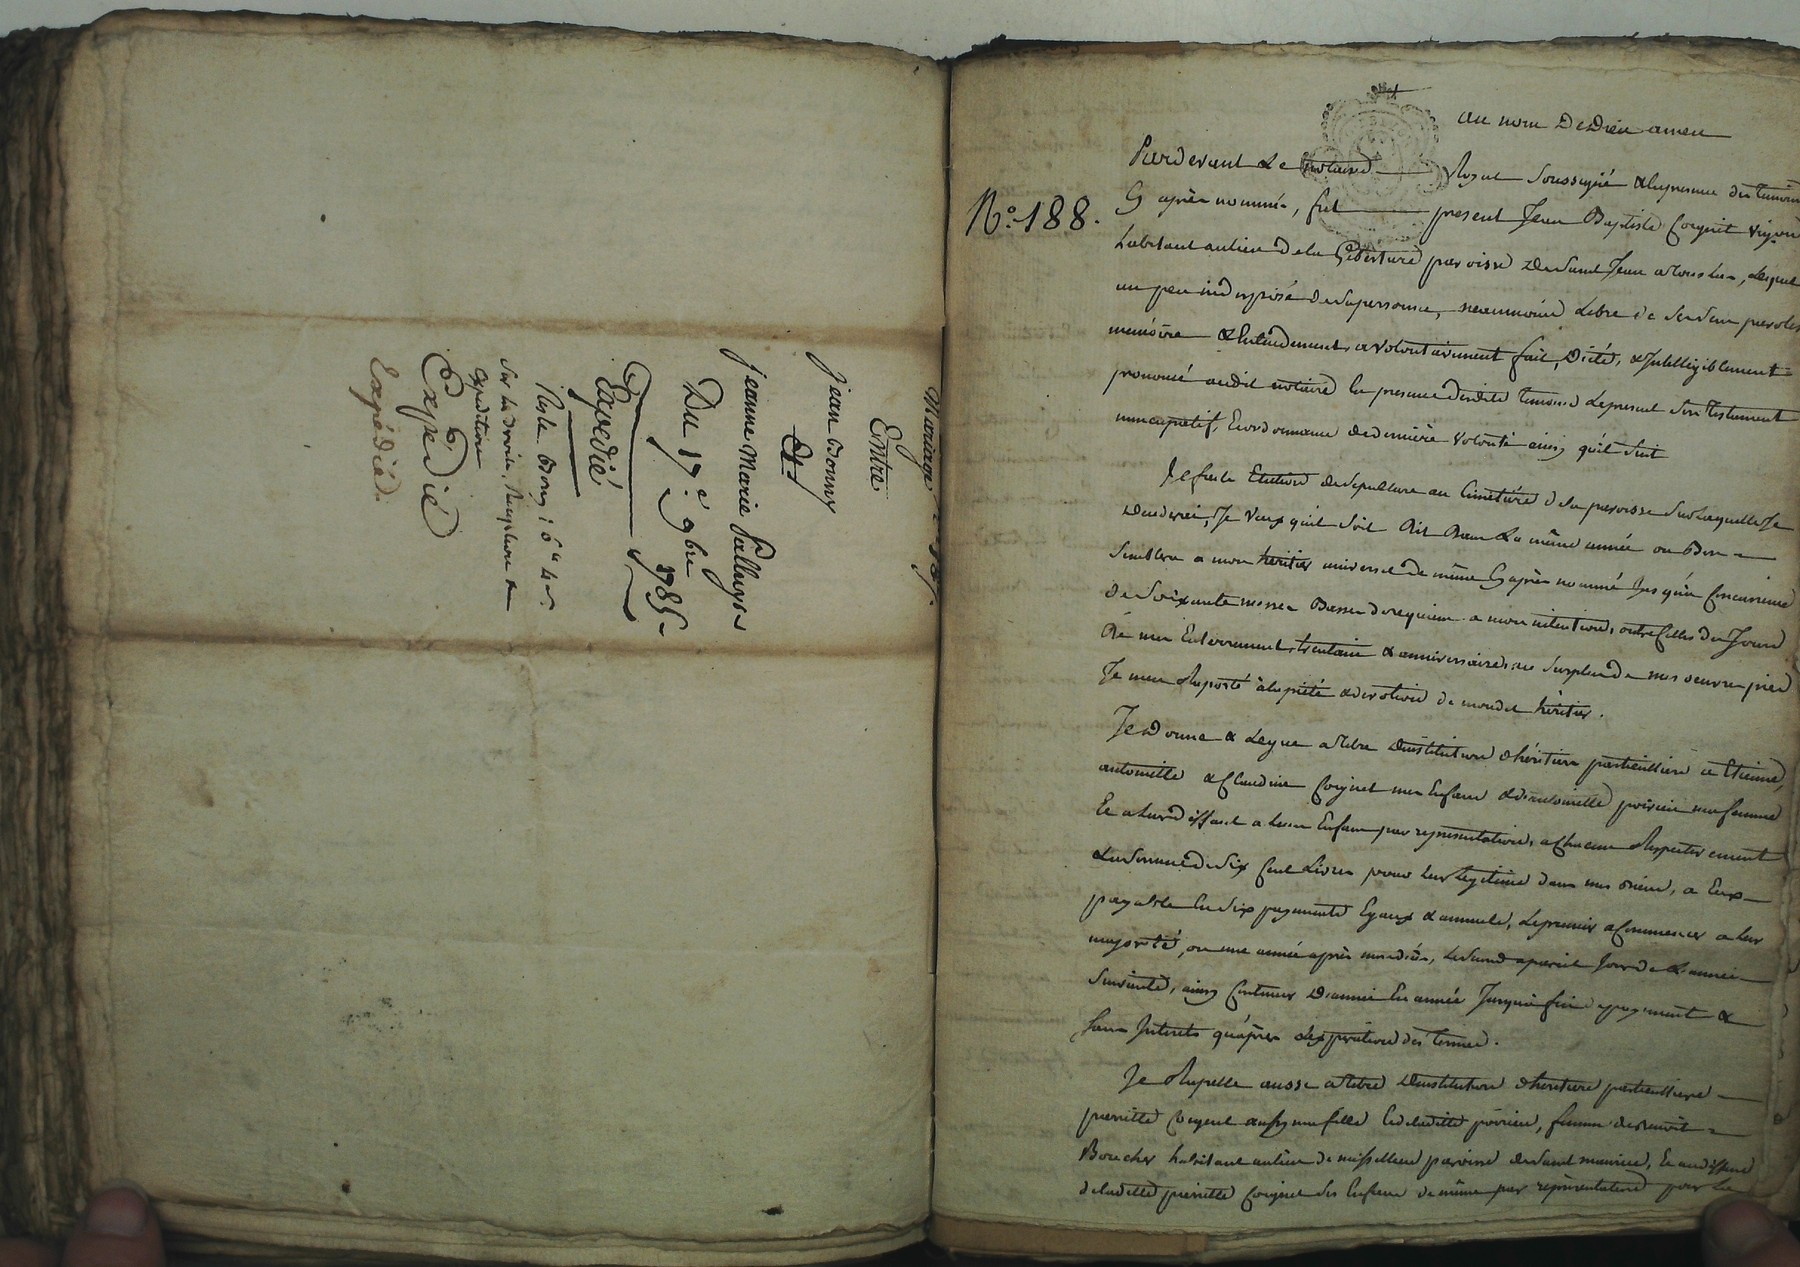 Mariage
Entre
jean Bonny
&
jeanne Marie Palluys
Du 17.e 9bre 1785
Expedié
Reste
Sur les droits, Reception &
expedition
Expédié
Expédié
au nom De Dieu amen
Pardevant Le notaire Royal Soussigné & En presence des temoins
Cy après nommés, fut present Jean Baptiste Coignet vigneron
habitant au lieu de la paroisse de Saint Jean a toulas, Lequel
un peu indisposé de sa personne, neammoins Libre de ses sens parole
memoire & Entendement, a volontairement fait, dicté, & Intelligiblement
prononcé audit notaire En presence desdits temoins Le present son testament
nuncupatif, Et ordonnance de derniere volonté ainsy qu'il suit
N.º 188.
Je fais Election de sepulture au Cimetiére de la paroisse sur laquelle Je
decederai, Je veux qu'il soit dit dans La même année ou Bon
Semblera a mon heritier universel de même Cy après nommé Jusqu'a Concurrence
de Soixante messes Basses de requiem a mon intention, outre Celles du Jour
de mon Enterrement, trentaine & anniversaire, au Surplus de mes oeuvres pies
Je men Raporte à la pieté & devotion de mondit heritier.
Je Donne & Legue a titre d'institution d'héritiers particulliers a Etienne,
antoinette & Claudine Coignet mes Enfans & d'antoinette poirieu ma femme
Et a leur deffaut a leurs Enfans par representation, a Chacun Respectivement
La Somme de Six Cent Livres pour leur legitime dans mes biens, a Eux
payable En Six payements Egaux & annuels, Le premier a Commencer a leur
majorité, ou une année après mon décès, Le Second a pareil Jour de L'année
Suivante, ainsy Continuer d'année En année Jusqu'a fin de payement &
Sans Interets qu'apres L'expiration des termes.
Je Rapelle aussi a titre d'institution d'heritiere particulliere
pierrette Coignet aussy ma fille & de ladite poirieu, femme de benoit
Boucher habitant au lieu de paroisse de Saint maurice, Et au deffaut
de ladite pierrette Coignet ses Enfans de même par représentation pour la